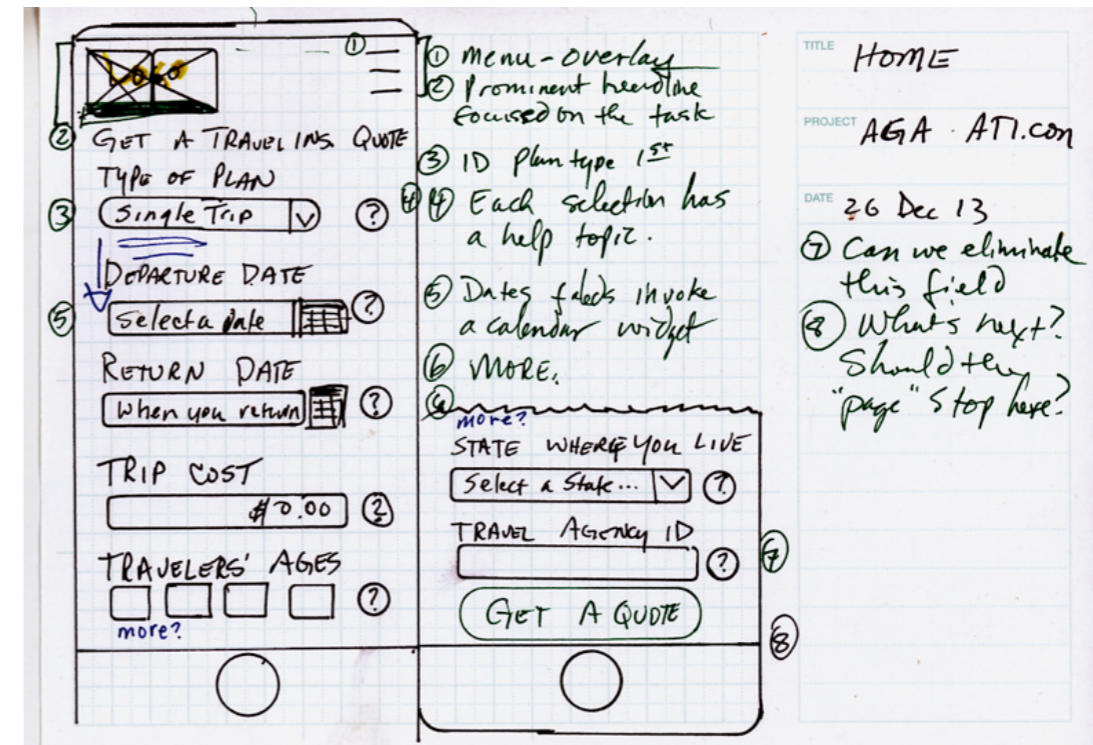 LOGO
①
② GET A TRAVEL INS. QUOTE
TYPE OF PLAN
③ Single Trip V ?
DEPARTURE DATE
⑤ Select a date ?
RETURN DATE
When you return ?
TRIP COST
$0.00 ?
TRAVELERS' AGES
?
more?
① Menu - overlay
② Prominent headline
focussed on the task
③ ID Plan type 1st
④ ④ Each selection has
a help topic.
⑤ Dates fields invoke
a calendar widget
⑥ MORE.
⑥
more?
STATE WHERE YOU LIVE
Select a State... V ?
TRAVEL AGENCY ID
? ⑦
GET A QUOTE
⑧
TITLE HOME
PROJECT AGA ATI.com
DATE 26 Dec 13
⑦ Can we eliminate
this field
⑧ What's next?
Should the
"page" Stop here?